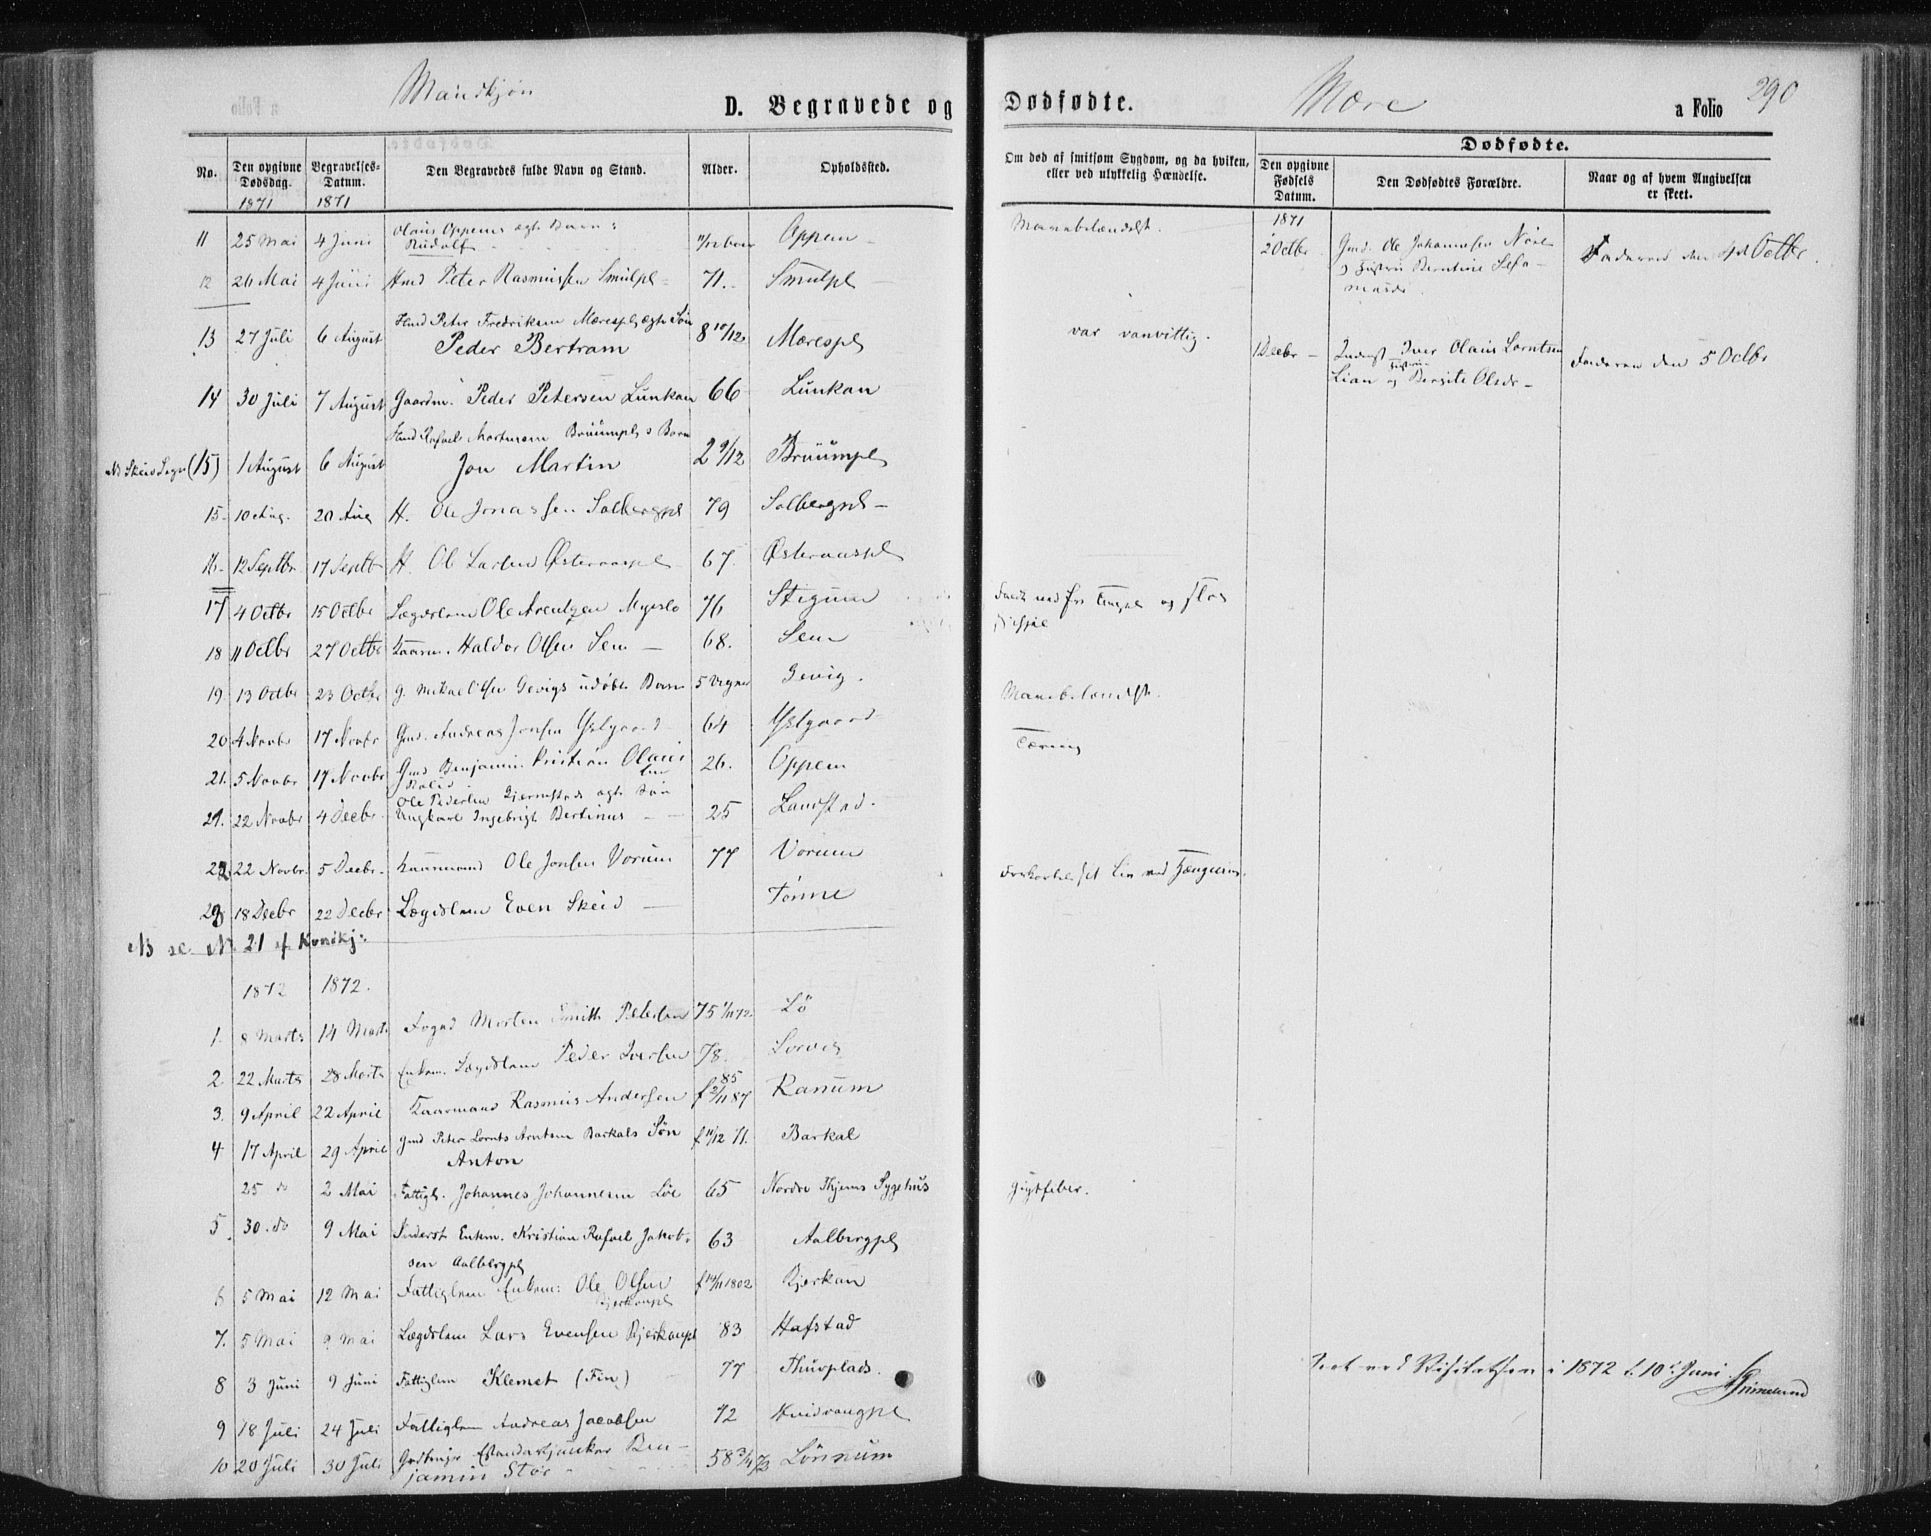 Mandkjøn
D. Begravede og Dødfødte.
Mære
a Folio 290
No.
Den opgivne Dødsdag.
Begravelses-Datum.
Den Begravedes fulde Navn og Stand.
Alder.
Opholdssted.
Om død af smitsom Sygdom, og da hvilken, eller ved ulykkelig Hændelse.
Dødfødte.
Den opgivne Fødsels Datum.
Den Dødfødtes Forældre.
Naar og af hvem Angivelsen er skeet.
1871 1871
1871
11 25 Mai 4 Juni Olaus Oppems ægte Barn:
Rudolf Oppem
2 Octbr Gmd. Ole Johannesen
Hustru Berntine
Faderen den 4de Octbr.
12 26 Mai 4 Juni Hmd Peter Rasmussen Smulpl 71. Smulpl
13 27 Juli 6 August Hmd Peter Fredriksen Mærespl ægte Søn
Peder Bertram 8 10/12 Mærespl var vanvittig.
1 Decbr Inderst Iver Olaus Lorntsen
Lian og Hustru Bergite Olsdr Faderen den 5 Octbr
14 30 Juli 7 August Gaardm. Peder Petersen Lunkan 66 Lunkan
Hmd Rafael Mortensen Bruumpls Barn
NB Skeis Sogn (15) 1 August 6 August Jon Martin 2 9/12 Bruumpl
15 10 Aug. 20 Aug H. Ole Jonassen Solbergpl 79 Solbergpl
16 12 Septbr 17 Septbr H. Ole Larsen Østeraaspl 67. Østeraaspl
17 4 Octbr 15 Octbr Lægdslem Ole Arentzen Myeslo 76 Stigum
18 11 Octbr 27 Octbr Kaarm. Haldor Olsen Sem 68. Sem
19. 13 Octbr 23 Octbr G. Mikael Olsen Gevigs udøbte Barn 5 Gevig.
20 4 Novbr 17 Novbr Gmd. Andreas Jonsen Ystgaard 64 Ystgaard
Tæring
21. 5 Novbr 17 Novbr Gmd Benjamin Kristian Olaus 26. Oppem
Ole Pedersen ægte Søn
21. 22 Novbr 4 Decbr Ungkarl Ingebrigt Bertinus 25 Landstad.
22 22 Novbr. 5 Decbr. Kaarmand Ole Jonsen Vorum 77 Vorum
23 18 Decbr 22 Decbr Lægdslem Even Skeid Tønne
NB se No. 21 af Kvindkj:
1872 1872.
1. 8 Marts 14 Marts Fogd Morten Smith Petersen 75 Lø
2. 22 Marts 28 Marts Enkem. Lægdslem Peder Iversen 78.
3. 9 April 22 April Kaarmand Rasmus Andersen 85
87 Ranum
4 17 April 29 April Gmd Peter Lornts Arntsen Barkals Søn
Anton f 11/12 71. Barkal
25 do 2 Mai Fattigl. Johannes Johannesen Løe 65 Nordre Thjems Sygehus Gigtfeber.
5. 30. do 9 Mai Inderst Enkm. Kristian Rafael Jakob-
sen Aalbergpl 63 Aalbergpl
6 5 Mai 12 Mai Fattiglem Enkem: Ole Olsen
Bjerkanpl 1802 Bjerkan
7. 5 Mai 9 Mai Lægdslem Lars Evensen Bjerkanpl 83 Hafstad
8 3 Juni 9 Juni Fattiglem Klemet (Fin) 77 Thuvplads.
Seet ved Visitatsen i 1872 d. 10de Juni Grimelund
9 18 Juli 24 Juli Fattiglem Andreas Jacobsen 72
10 20 Juli 30 Juli Standartjunker Ben-
jamin Stør 58 Lønnum